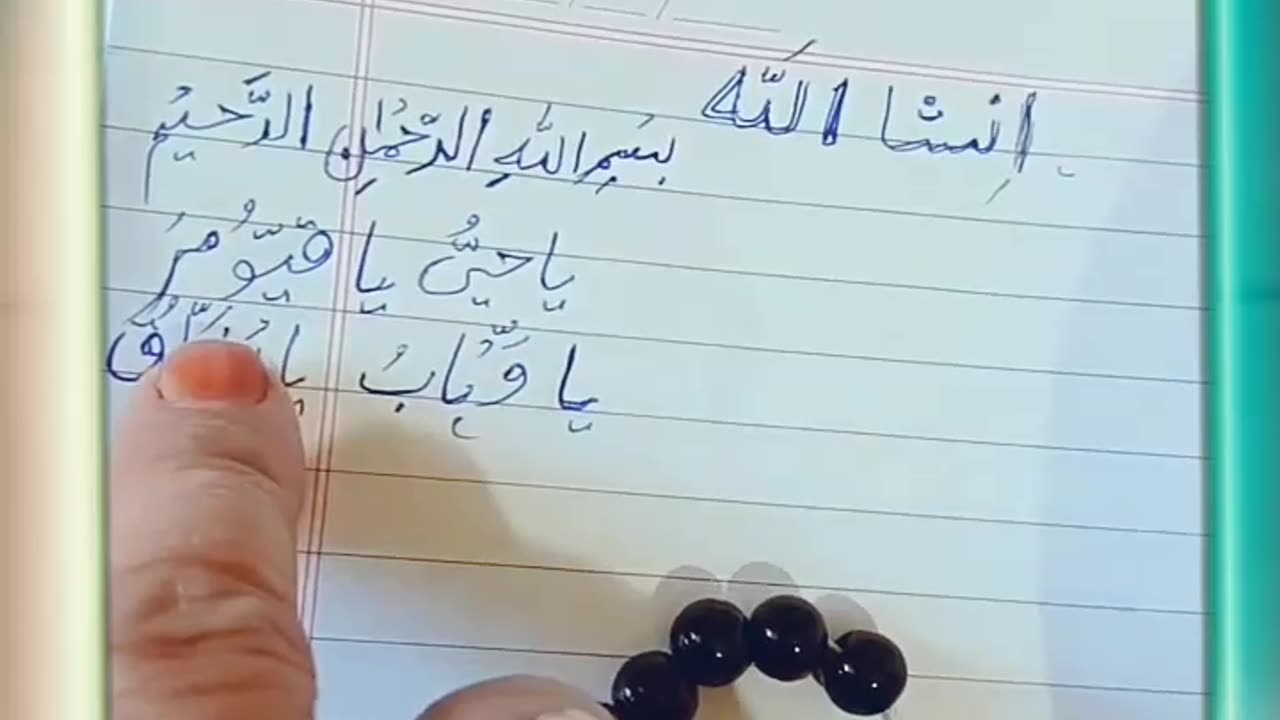 انشا اللّٰه
بسمِ اللّٰهِ الرَّحْمٰنِ الرَّحیم
یا حیُّ یا قیّوُمُ
یا وَہّابُ یا